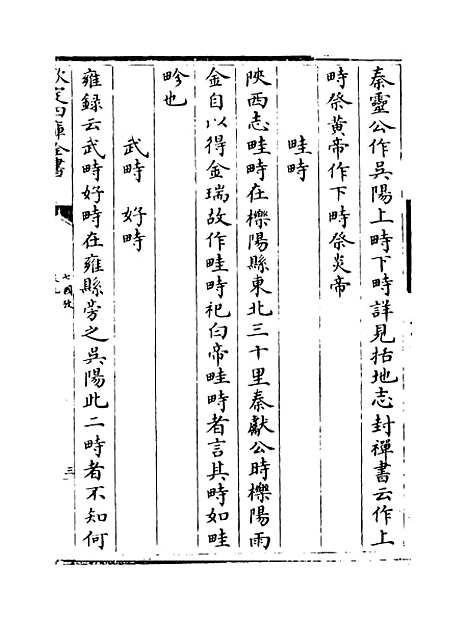 秦靈公作吳陽上畤下畤詳見括地志封禪書云作上
畤祭黄帝作下畤祭炎帝
畦畤
陜西志畦畤在櫟陽縣東北三十里秦獻公時櫟陽雨
金自以得金瑞故作畦畤祀白帝畦畤者言其畤如畦
畛也
武畤　好畤
雍録云武畤好畤在雍縣旁之吳陽此二畤者不知何
欽定四庫全書
七國攷
三